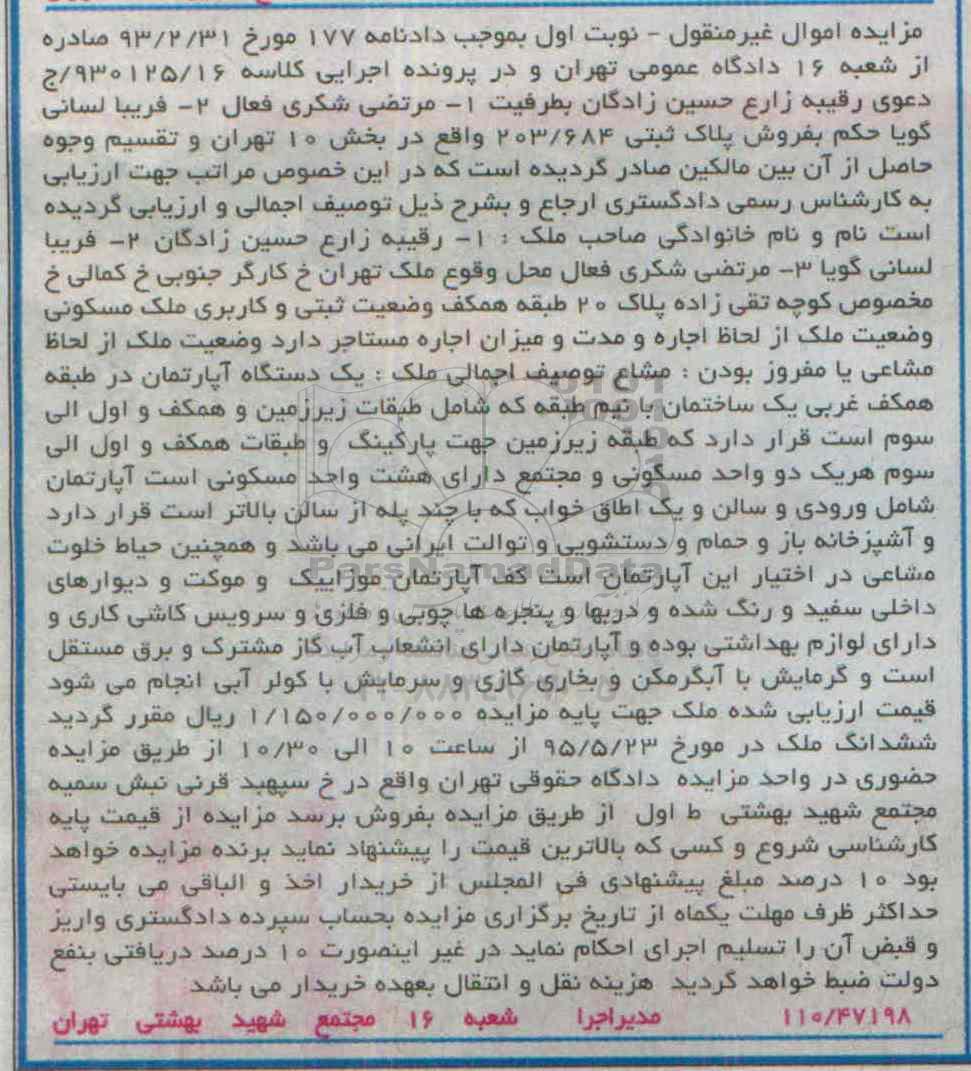 مزایده اموال غیرمنقول - نوبت اول بموجب دادنامه ۱۷۷ مورخ ۹۳/۲/۳۱ صادره
از شعبه ۱۶ دادگاه عمومی تهران و در پرونده اجرایی کلاسه ۹۳۰۱۲۵/۱۶/ج
دعوی رقیبه زارع حسین زادگان بطرفیت ۱- مرتضی شکری فعال ۲- فریبا لسانی
گویا حکم بفروش پلاک ثبتی ۲۰۳/۶۸۴ واقع در بخش ۱۰ تهران و تقسیم وجوه
حاصل از آن بین مالکین صادر گردیده است که در این خصوص مراتب جهت ارزیابی
به کارشناس رسمی دادگستری ارجاع و بشرح ذیل توصیف اجمالی و ارزیابی گردیده
است نام و نام خانوادگی صاحب ملک : ۱- رقیبه زارع حسین زادگان ۲- فریبا
لسانی گویا ۳- مرتضی شکری فعال محل وقوع ملک تهران خ کارگر جنوبی خ کمالی خ
مخصوص کوچه تقی زاده پلاک ۲۰ طبقه همکف وضعیت ثبتی و کاربری ملک مسکونی
وضعیت ملک از لحاظ اجاره و مدت و میزان اجاره مستاجر دارد وضعیت ملک از لحاظ
مشاعی یا مفروز بودن : مشاع توصیف اجمالی ملک : یک دستگاه آپارتمان در طبقه
همکف غربی یک ساختمان با نیم طبقه که شامل طبقات زیرزمین و همکف و اول الی
سوم است قرار دارد که طبقه زیرزمین جهت پارکینگ و طبقات همکف و اول الی
سوم هریک دو واحد مسکونی و مجتمع دارای هشت واحد مسکونی است آپارتمان
شامل ورودی و سالن و یک اطاق خواب که با چند پله از سالن بالاتر است قرار دارد
و آشپزخانه باز و حمام و دستشویی و توالت ایرانی می باشد و همچنین حیاط خلوت
ParsNamadData
مشاعی در اختیار این آپارتمان است کف آپارتمان موزاییک و موکت و دیوارهای
داخلی سفید و رنگ شده و دربها و پنجره ها چوبی و فلزی و سرویس کاشی کاری و
دارای لوازم بهداشتی بوده و آپارتمان دارای انشعاب آب گاز مشترک و برق مستقل
است و گرمایش با آبگرمکن و بخاری گازی و سرمایش با کولر آبی انجام می شود
قیمت ارزیابی شده ملک جهت پایه مزایده ۱/۱۵۰/۰۰۰/۰۰۰ ریال مقرر گردید
ششدانگ ملک در مورخ ۹۵/۵/۲۳ از ساعت ۱۰ الی ۱۰/۳۰ از طریق مزایده
حضوری در واحد مزایده دادگاه حقوقی تهران واقع در خ سپهبد قرنی نبش سمیه
مجتمع شهید بهشتی ط اول از طریق مزایده بفروش برسد مزایده از قیمت پایه
کارشناسی شروع و کسی که بالاترین قیمت را پیشنهاد نماید برنده مزایده خواهد
بود ۱۰ درصد مبلغ پیشنهادی فی المجلس از خریدار اخذ و الباقی می بایستی
حداکثر ظرف مهلت یکماه از تاریخ برگزاری مزایده بحساب سپرده دادگستری واریز
و قبض آن را تسلیم اجرای احکام نماید در غیر اینصورت ۱۰ درصد دریافتی بنفع
دولت ضبط خواهد گردید هزینه نقل و انتقال بعهده خریدار می باشد
۱۱۰/۴۷۱۹۸ مدیراجرا شعبه ۱۶ مجتمع شهید بهشتی تهران